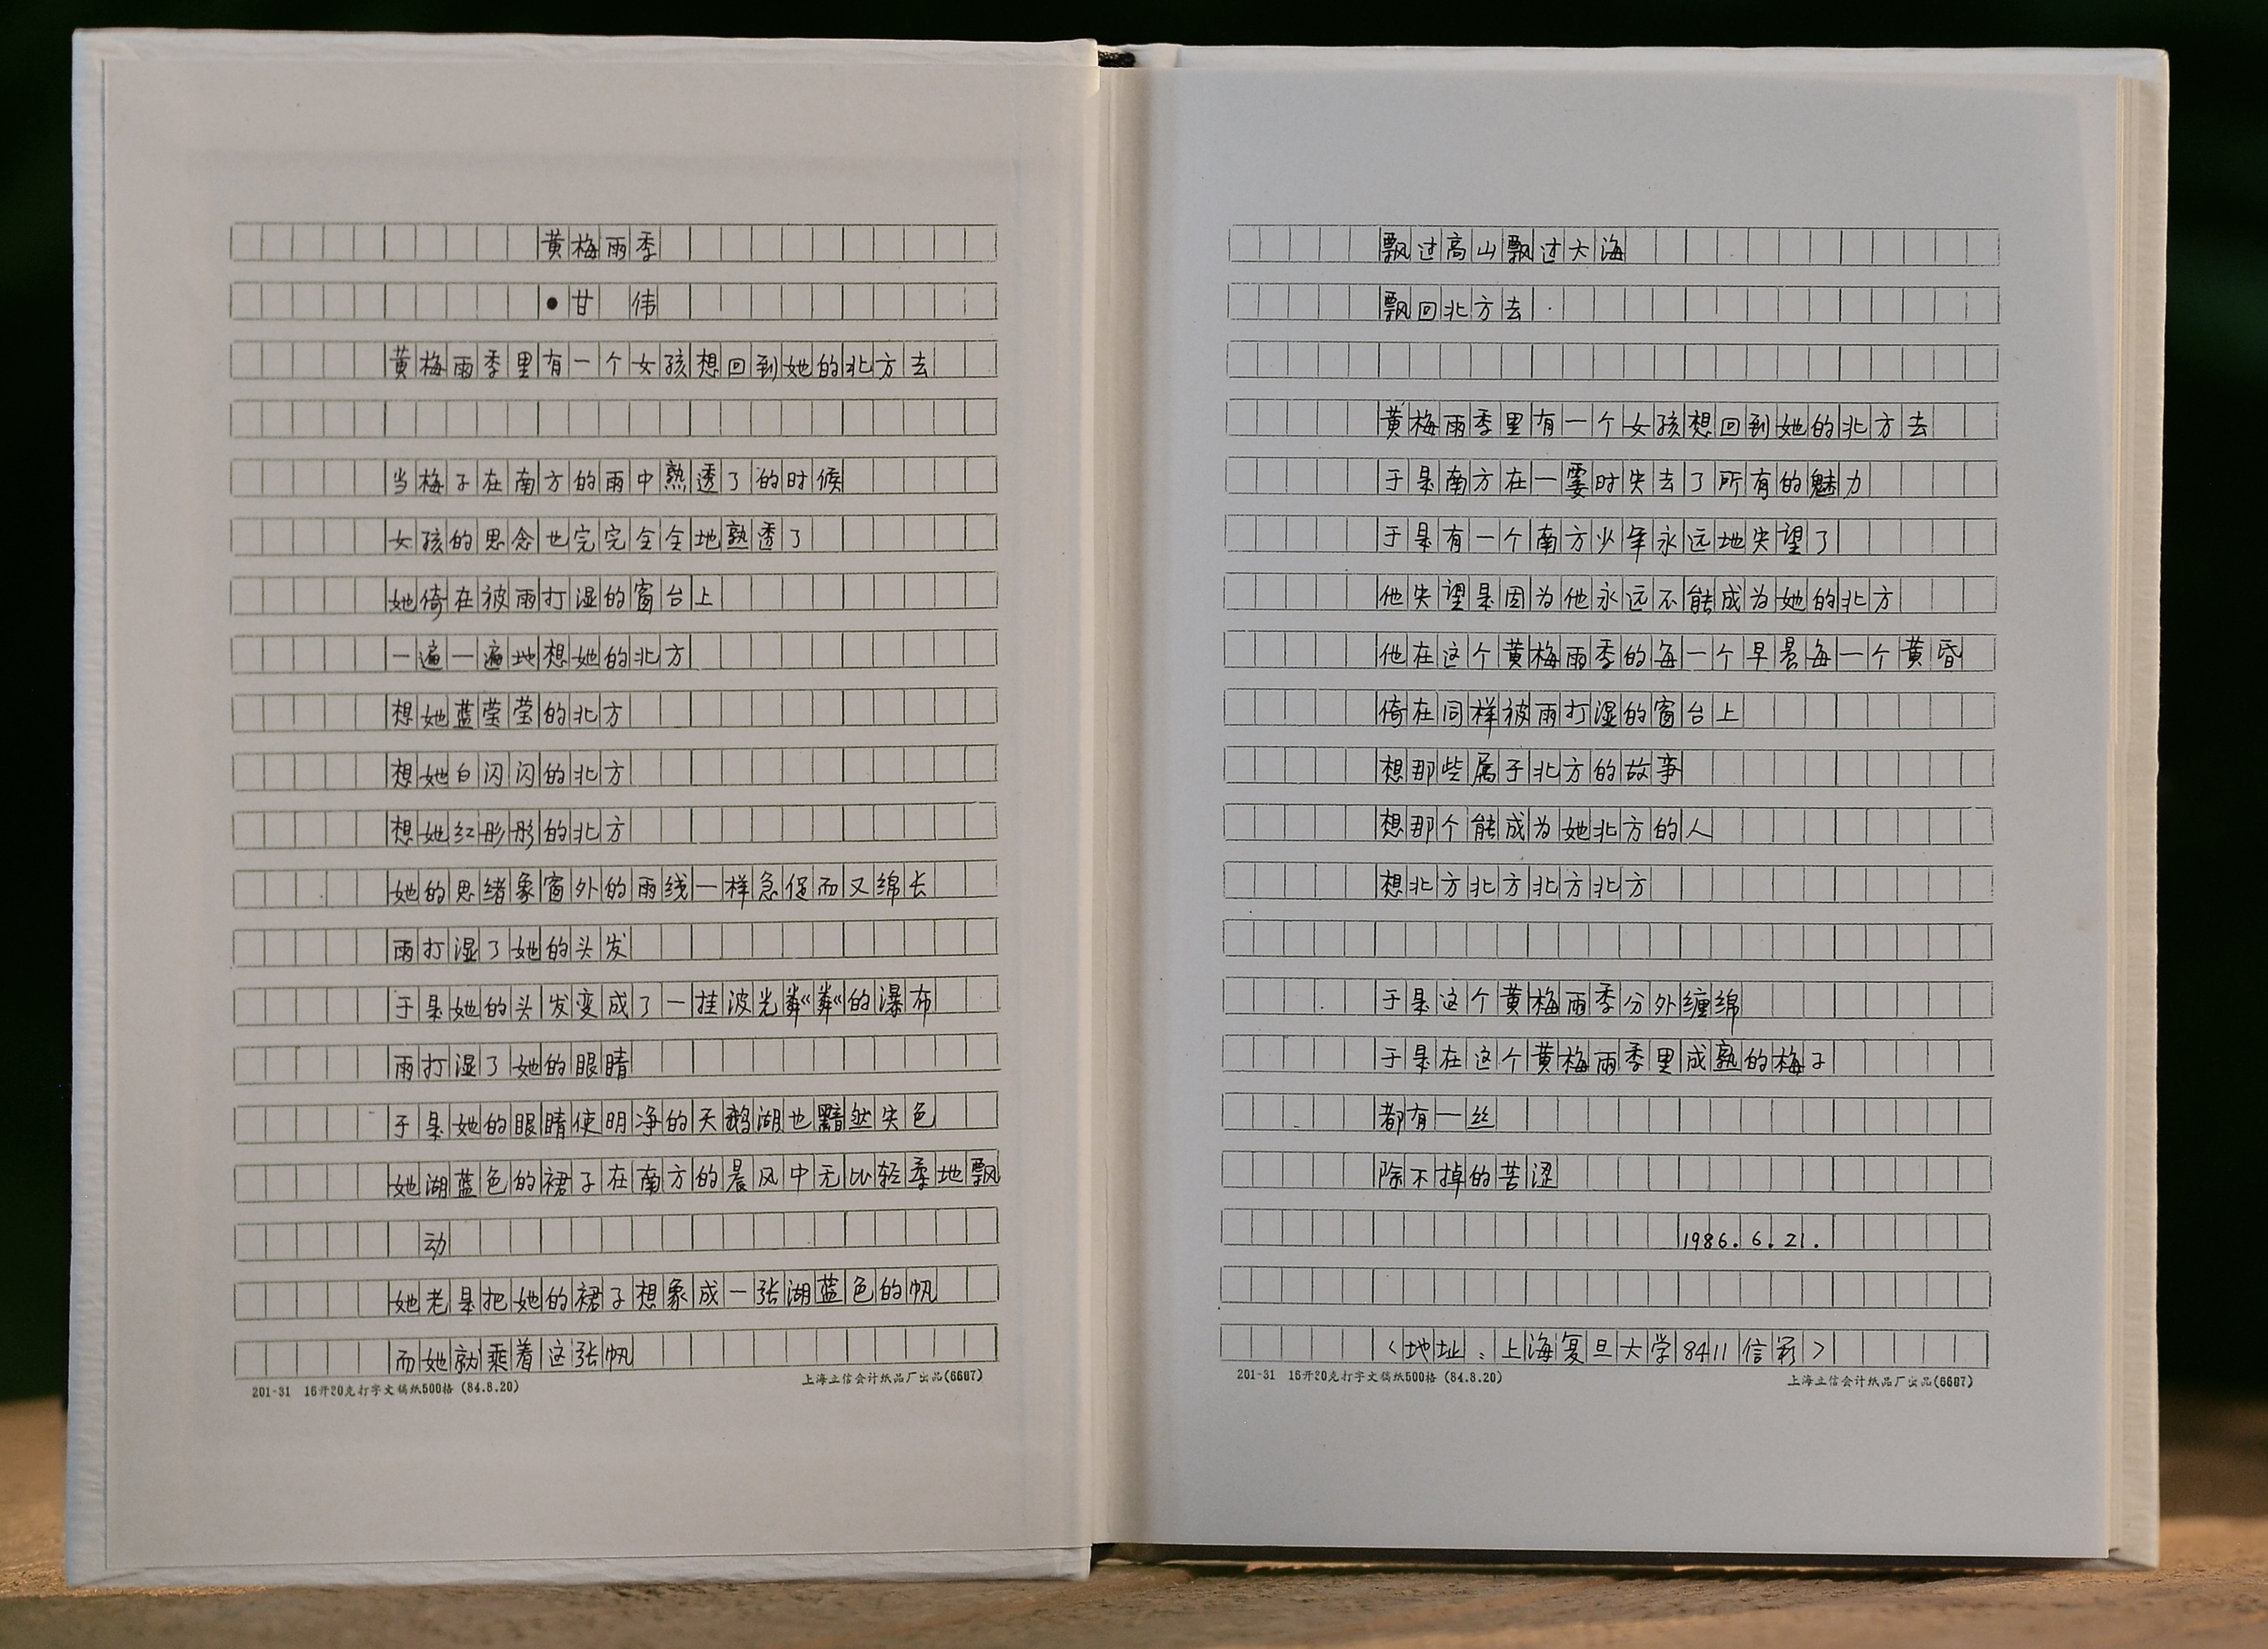 黄梅雨季
●甘 伟
黄梅雨季里有一个女孩想回到她的北方去
当梅子在南方的雨中熟透了的时候
女孩的思念也完完全全地熟透了
她倚在被雨打湿的窗台上
一遍一遍地想她的北方
想她蓝莹莹的北方
想她白闪闪的北方
想她红彤彤的北方
她的思绪象窗外的雨线一样急促而又绵长
雨打湿了她的头发
于是她的头发变成了一挂波光粼粼的瀑布
雨打湿了她的眼睛
于是她的眼睛使明净的天鹅湖也黯然失色
她湖蓝色的裙子在南方的晨风中无比轻柔地飘
动
她老是把她的裙子想象成一张湖蓝色的帆
而她就乘着这张帆
201-31 16开20克打字文稿纸500格 (84.8.20) 上海立信会计纸品厂出品(6607)
飘过高山飘过大海
飘回北方去
黄梅雨季里有一个女孩想回到她的北方去
于是南方在一霎时失去了所有的魅力
于是有一个南方少年永远地失望了
他失望是因为他永远不能成为她的北方
他在这个黄梅雨季的每一个早晨每一个黄昏
倚在同样被雨打湿的窗台上
想那些属于北方的故事
想那个能成为她北方的人
想北方北方北方北方
于是这个黄梅雨季分外缠绵
于是在这个黄梅雨季里成熟的梅子
都有一丝
除不掉的苦涩
1986.6.21.
〈地址:上海复旦大学8411信箱〉
201-31 16开20克打字文稿纸500格 (84.8.20) 上海立信会计纸品厂出品(6607)